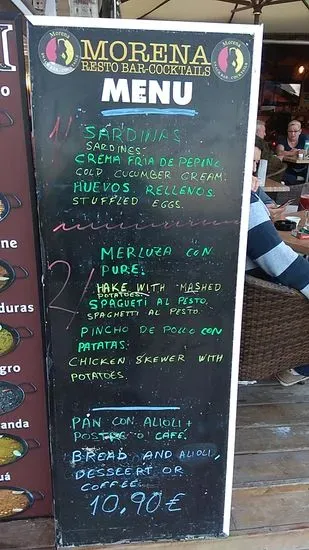 Morena
MORENA
RESTO BAR-COCKTAILS
Morena
MENU
1/ SARDINAS
SARDINES
CREMA FRIA DE PEPINO
COLD CUCUMBER CREAM.
HUEVOS RELLENOS.
STUFFED EGGS.
2/ MERLUZA CON
PURE.
HAKE WITH MASHED
POTATOES.
SPAGUETI AL PESTO.
SPAGHETTI AL PESTO.
PINCHO DE POLLO CON
PATATAS.
CHICKEN SKEWER WITH
POTATOES.
PAN CON ALIOLI +
POSTRE O CAFÉ.
BREAD AND ALIOLI,
DESSEERT OR
COFFEE.
10,90€
ne
duras
gro
anda
uá